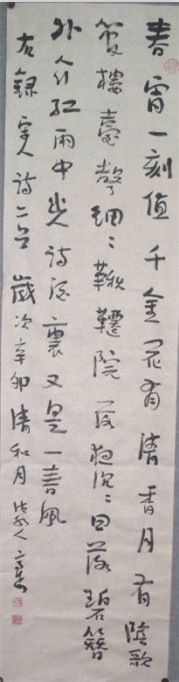 春宵一刻值千金花有清香月有陰歌
管樓臺聲細〻鞦韆院落夜沉〻日落碧簪
外人行红雨中幽人詩酒裏又是一春風
右録宋人詩二首歲次辛卯清和月